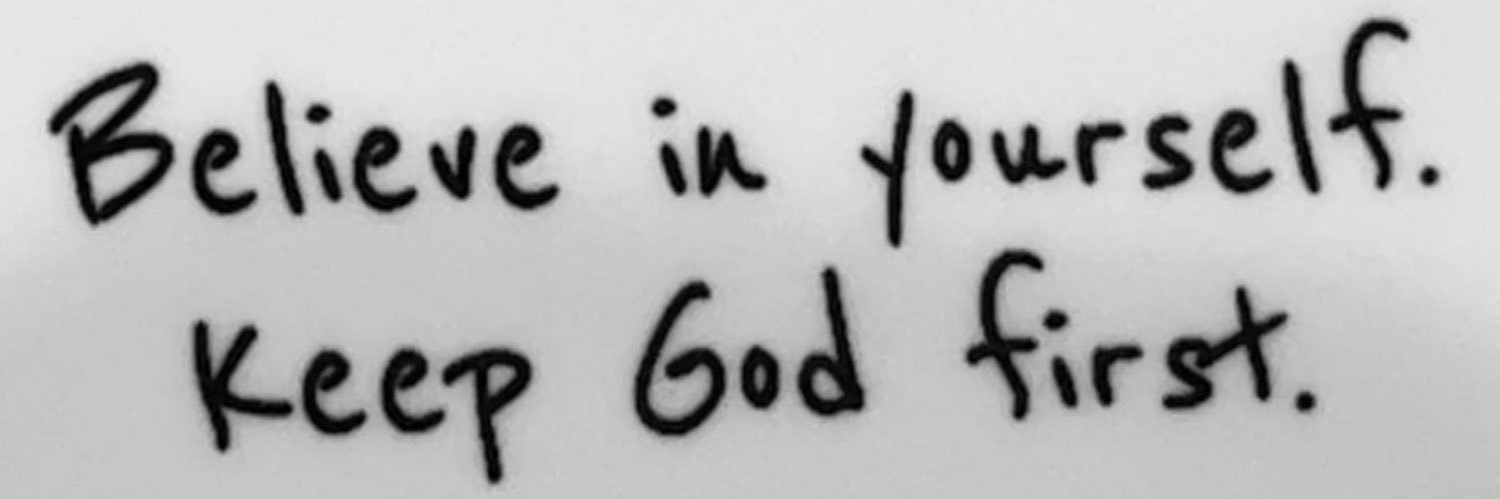 Believe in yourself.
Keep God first.